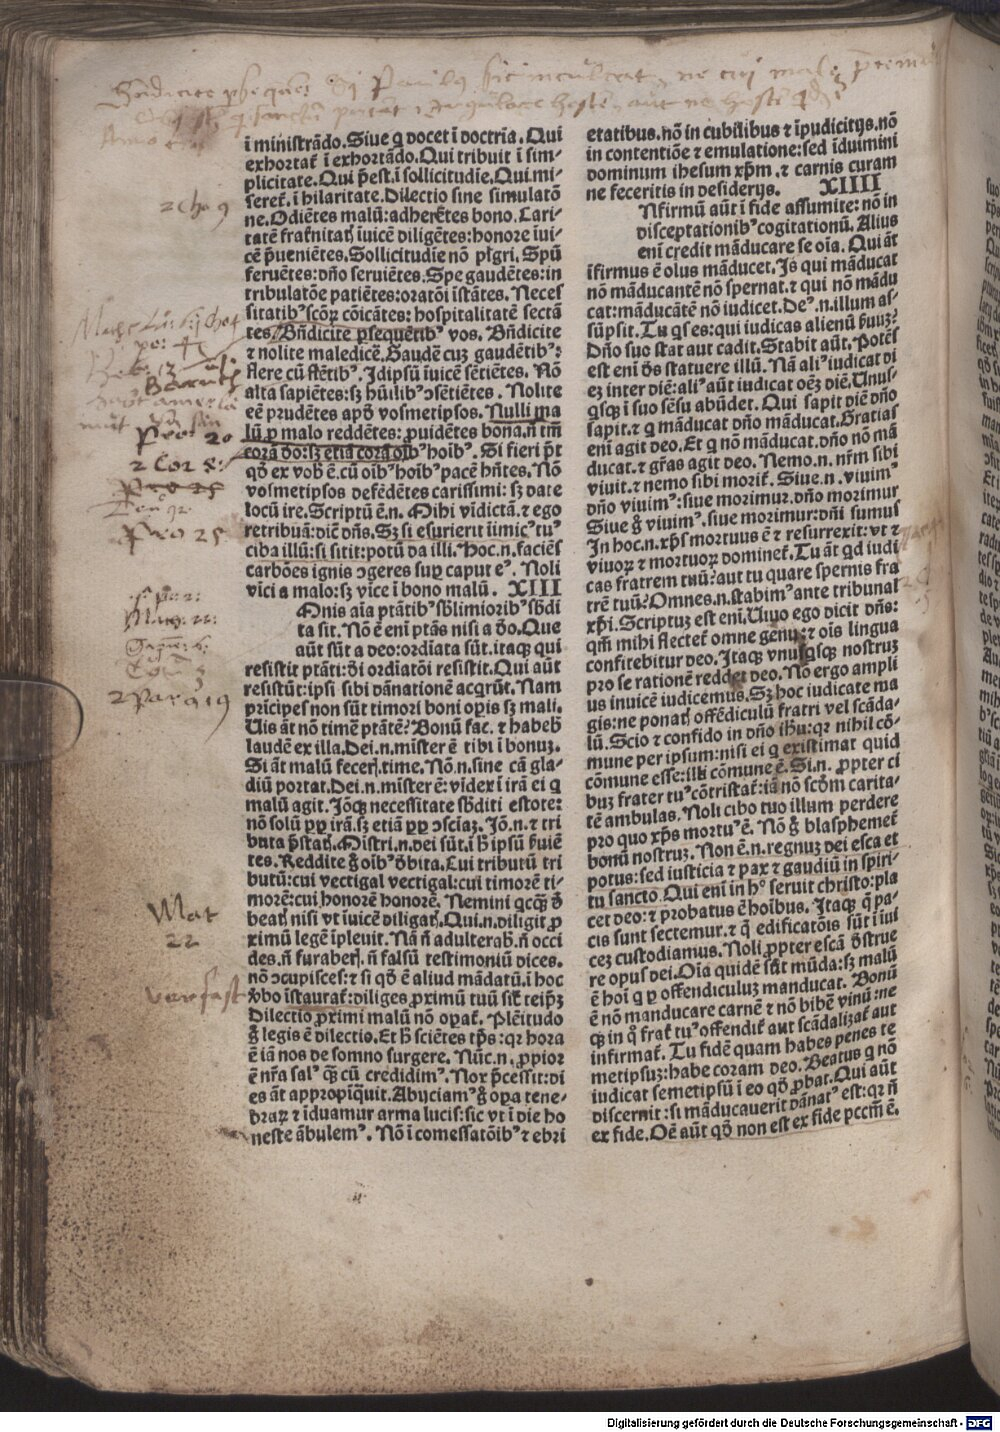 ī ministrādo. Siue q docet ī doctrīa. Qui
exhortat᷑ ī exhortādo. Qui tribuit ī sim-
plicitate. Qui p̄est. ī sollicitudīe. Qui mi-
seret᷑. ī hilaritate. Dilectio sine simulatō
ne. Odiētes malū: adherētes bono. Cari-
tatē frat᷑nitatꝭ īuicē diligētes: honore īui-
cē p̄ueniētes. Sollicitudīe nō pigri. Spū
feruētes: dn̄o seruiētes. Spe gaudētes: in
tribulatōe patiētes: oratōi īstātes. Neces
sitatibꝰ scōꝝ cōicātes: hospitalitatē sectā
tes. Bn̄dicite ꝑsequētibꝰ vos. Bn̄dicite
⁊ nolite maledicē. Gaudē cuꝫ gaudētibꝰ:
flere cū flētibꝰ. Idipsū īuicē sētiētes. Nō
alta sapiētes: sꝫ hūilibꝰ ↄsētiētes. Nolite
eē prudētes apd̄ vosmetipsos. Nulli ma
lū ꝓ malo reddētes: ꝓuidētes bona. n̄ tm̄
corā do: sꝫ etiā corā oībꝰ hoībꝰ. Si fieri pt̄
qd̄ ex vobꝭ ē. cū oībꝰ hoībꝰ pacē hn̄tes. Nō
vosmetipsos defēdētes carissimi: sꝫ date
locū ire. Scriptū ē. n. Mihi vīdictā. ⁊ ego
retribuā: dic̄ dn̄s. Sꝫ si esurierit īimicꝰ tuꝰ
ciba illū: si sitit: potū da illi. Hoc. n. faciēs
carbōes ignis ↄgeres suꝑ caput eꝰ. Noli
vīci a malo: sꝫ vīce ī bono malū. XIII
Mnis aīa ptātibꝰ sb̄limioribꝰ sb̄di
ta sit. Nō ē enī ptās nisi a do. Que
aūt sūt a deo: ordīata sūt. itaqꝫ qui
resistit ptāti: di ordīatōi resistit. Qui aūt
resistūt: ipsi sibi dānationē acqrūt. Nam
prīcipes non sūt timori boni opis sꝫ mali.
Uis āt nō timē ptātē? Bonū fac. ⁊ habebꝭ
laudē ex illa. Dei. n. mīster ē tibi ī bonuꝫ.
Si āt malū fecerꝭ. time. Nō. n. sine cā gla-
diū portat. Dei. n. mīster ē: vīdex ī irā ei q
malū agit. Iōqꝫ necessitate sb̄diti estote:
nō solū ꝓp irā. sꝫ etiā ꝓp ↄsciaꝫ. Iō. n. ⁊ tri
buta p̄statꝭ. Mīstri. n. dei sūt. ī h ipsū ƀuiē
tes. Reddite g oībꝰ dbita. Cui tributū tri
butū: cui vectigal vectigal: cui timorē ti-
morē: cui honorē honorē. Nemini qcqꝫ d
beatꝭ nisi vt īuicē diligatꝭ. Qui. n. diligit ꝓ
ximū legē īpleuit. Nā n̄ adulterabꝭ. n̄ occi
des. n̄ furaberꝭ. n̄ falsū testimoniū dices.
nō ↄcupisces: ⁊ si qd̄ ē aliud mādatū. ī hoc
ƀbo īstaurat᷑: diliges ꝓximū tuū sīc teipꝫ
Dilectio ꝓximi malū nō opat᷑. Plēitudo
g legis ē dilectio. Et h sciētes tp̄s: qꝛ hora
ē iā nos de somno surgere. Nūc. n. ꝓpior
ē nr̄a salꝰ qꝫ cū credidimꝰ. Nox p̄cessit: di
es āt appropīquit. Abijciamꝰ g opa tene-
braꝝ ⁊ īduamur arma lucis: sic vt ī die ho
neste ābulemꝰ. Nō ī comessatōibꝰ ⁊ ebri
etatibus. nō in cubilibus ⁊ īpudicitijs. nō
in contentiōe ⁊ emulatione: sed īduimini
dominum ihesum xp̄m. ⁊ carnis curam
ne feceritis in desiderijs. XIIII
Nfirmū aūt ī fide assumite: nō in
disceptationibꝰ cogitationū. Alius
enī credit māducare se oīa. Qui āt
īfirmus ē olus māducet. Is qui māducat
nō māducantē nō spernat. ⁊ qui nō mādu
cat: māducātē nō iudicet. Deꝰ. n. illum as-
sūpsit. Tu qs es: qui iudicas alienū ƀuuꝫ?
Dn̄o suo stat aut cadit. Stabit aūt. Potēs
est enī ds statuere illū. Nā aliꝰ iudicat di
eꝫ inter diē: aliꝰ aūt iudicat oēꝫ diē. Unus-
qsqꝫ ī suo sēsu abūdet. Qui sapit diē dn̄o
sapit. ⁊ q māducat dn̄o māducat. Gratias
enī agit deo. Et q nō māducat. dn̄o nō mā
ducat. ⁊ gr̄as agit deo. Nemo. n. nr̄m sibi
viuit. ⁊ nemo sibi morit᷑. Siue. n. viuimꝰ
dn̄o viuimꝰ: siue morimur. dn̄o morimur
Siue g viuimꝰ. siue morimur: dn̄i sumus
In hoc. n. xp̄s mortuus ē ⁊ resurrexit: vt ⁊
viuoꝝ ⁊ mortuoꝝ dominet᷑. Tu āt qd iudi
cas fratrem tuū? aut tu quare spernis fra
trē tuū? Omnes. n. stabimꝰ ante tribunal
xp̄i. Scriptuꝫ est enī. Uiuo ego dicit dn̄s:
qm̄ mihi flectet᷑ omne genu: ⁊ oīs lingua
confitebitur deo. Itaqꝫ vnusqsqꝫ nostruꝫ
pro se rationē reddet deo. Nō ergo ampli
us inuicē iudicemus. Sꝫ hoc iudicate ma
gis: ne ponatꝭ offēdiculū fratri vel scāda-
lū. Scio ⁊ confido in dn̄o ihū: qꝛ nihil cō-
mune per ipsum: nisi ei q existimat quid
cōmune esse: illi cōmune ē. Si. n. ꝓpter ci
buꝫ frater tuꝰ cōtristat᷑: iā nō scdm̄ carita-
tē ambulas. Noli cibo tuo illum perdere
pro quo xp̄s mortuꝰ ē. Nō g blasphemet᷑
bonū nostruꝫ. Non ē. n. regnuꝫ dei esca et
potus: sed iusticia ⁊ pax ⁊ gaudiū in spiri-
tu sancto. Qui enī in hͦ seruit christo: pla
cet deo: ⁊ probatus ē hoībus. Itaqꝫ q pa-
cis sunt sectemur. ⁊ q edificatōis sūt ī īui
ceꝫ custodiamus. Noli ꝓpter escā dstrue
re opus dei. Oīa quidē sūt mūda: sꝫ malū
ē hoī q ꝑ offendiculuꝫ manducat. Bonū
ē nō manducare carnē ⁊ nō bibē vinū: ne
qꝫ in q frat᷑ tuꝰ offendit᷑ aut scādalizat᷑ aut
infirmat᷑. Tu fidē quam habes penes te
metipsuꝫ: habe coram deo. Beatus q nō
iudicat semetipsū ī eo qd̄ ꝓbat. Qui aūt
discernit: si māducauerit dānatꝰ est: qꝛ n̄
ex fide. Oē aūt qd̄ non est ex fide pcctm̄ ē.
2 Cho 9
Pro: 20
2 Cor 8:
Pro 25
Mat
22
Digitalisierung gefördert durch die Deutsche Forschungsgemeinschaft - DFG